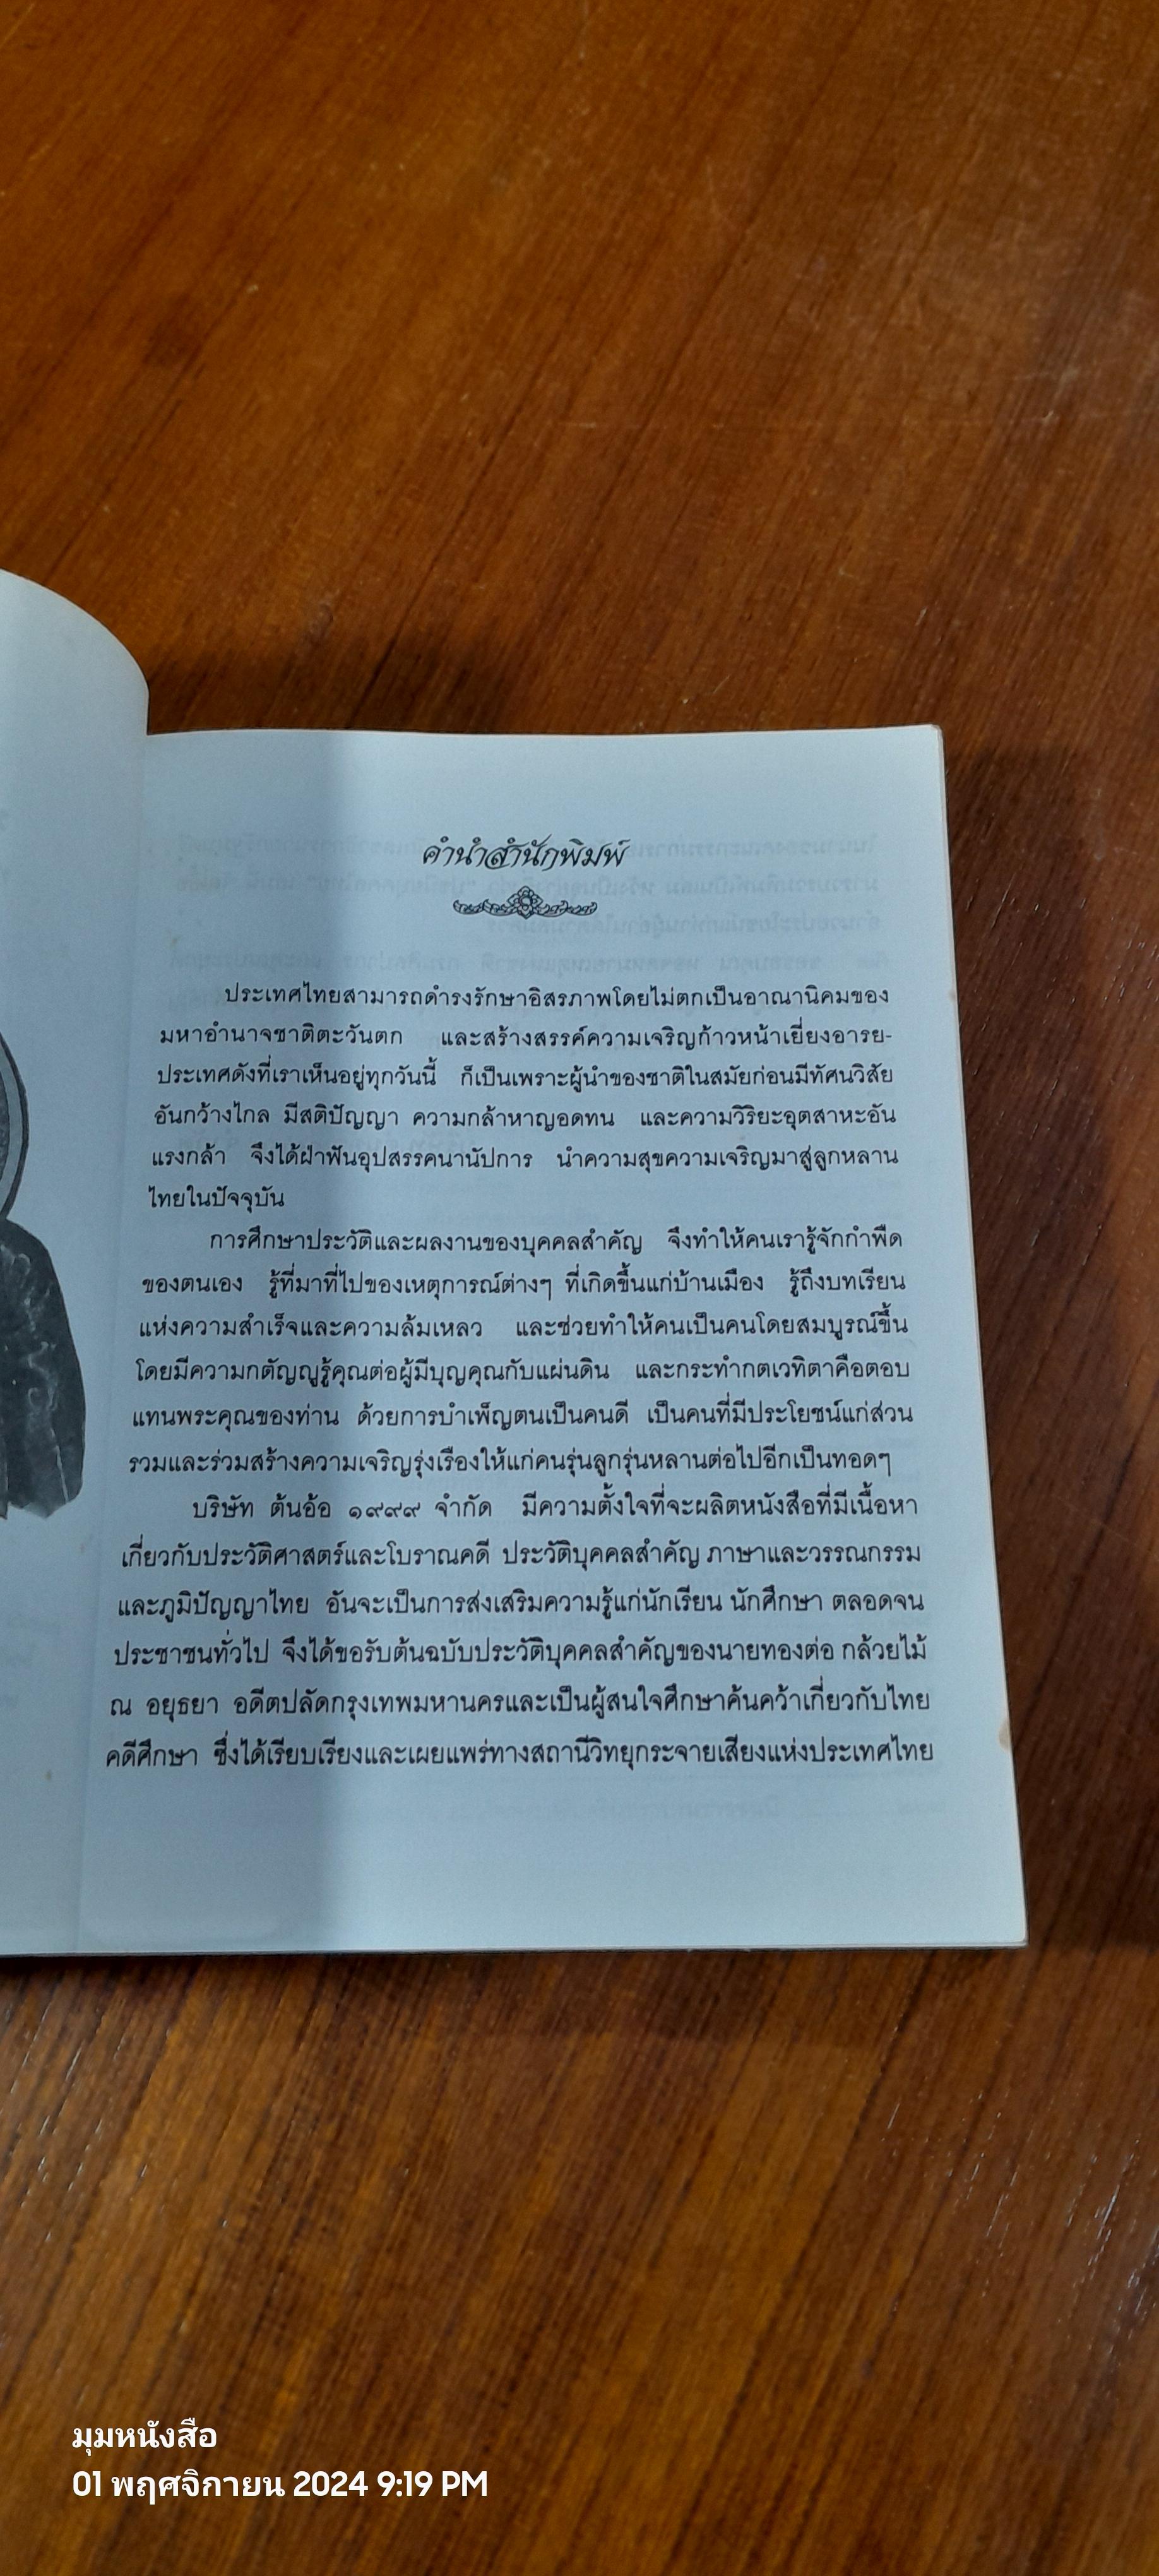 คำนำสำนักพิมพ์
ประเทศไทยสามารถดำรงรักษาอิสรภาพโดยไม่ตกเป็นอาณานิคมของ
มหาอำนาจชาติตะวันตก และสร้างสรรค์ความเจริญก้าวหน้าเยี่ยงอารย-
ประเทศดังที่เราเห็นอยู่ทุกวันนี้ ก็เป็นเพราะผู้นำของชาติในสมัยก่อนมีทัศนวิสัย
อันกว้างไกล มีสติปัญญา ความกล้าหาญอดทน และความวิริยะอุตสาหะอัน
แรงกล้า จึงได้ฝ่าฟันอุปสรรคนานัปการ นำความสุขความเจริญมาสู่ลูกหลาน
ไทยในปัจจุบัน
การศึกษาประวัติและผลงานของบุคคลสำคัญ จึงทำให้คนเรารู้จักกำพืด
ของตนเอง รู้ที่มาที่ไปของเหตุการณ์ต่างๆ ที่เกิดขึ้นแก่บ้านเมือง รู้ถึงบทเรียน
แห่งความสำเร็จและความล้มเหลว และช่วยทำให้คนเป็นคนโดยสมบูรณ์ขึ้น
โดยมีความกตัญญูรู้คุณต่อผู้มีบุญคุณกับแผ่นดิน และกระทำกตเวทิตาคือตอบ
แทนพระคุณของท่าน ด้วยการบำเพ็ญตนเป็นคนดี เป็นคนที่มีประโยชน์แก่ส่วน
รวมและร่วมสร้างความเจริญรุ่งเรืองให้แก่คนรุ่นลูกรุ่นหลานต่อไปอีกเป็นทอดๆ
บริษัท ต้นอ้อ ๑๙๙๙ จำกัด มีความตั้งใจที่จะผลิตหนังสือที่มีเนื้อหา
เกี่ยวกับประวัติศาสตร์และโบราณคดี ประวัติบุคคลสำคัญ ภาษาและวรรณกรรม
และภูมิปัญญาไทย อันจะเป็นการส่งเสริมความรู้แก่นักเรียน นักศึกษา ตลอดจน
ประชาชนทั่วไป จึงได้ขอรับต้นฉบับประวัติบุคคลสำคัญของนายทองต่อ กล้วยไม้
ณ อยุธยา อดีตปลัดกรุงเทพมหานครและเป็นผู้สนใจศึกษาค้นคว้าเกี่ยวกับไทย
คดีศึกษา ซึ่งได้เรียบเรียงและเผยแพร่ทางสถานีวิทยุกระจายเสียงแห่งประเทศไทย
มุมหนังสือ
01 พฤศจิกายน 2024 9:19 PM